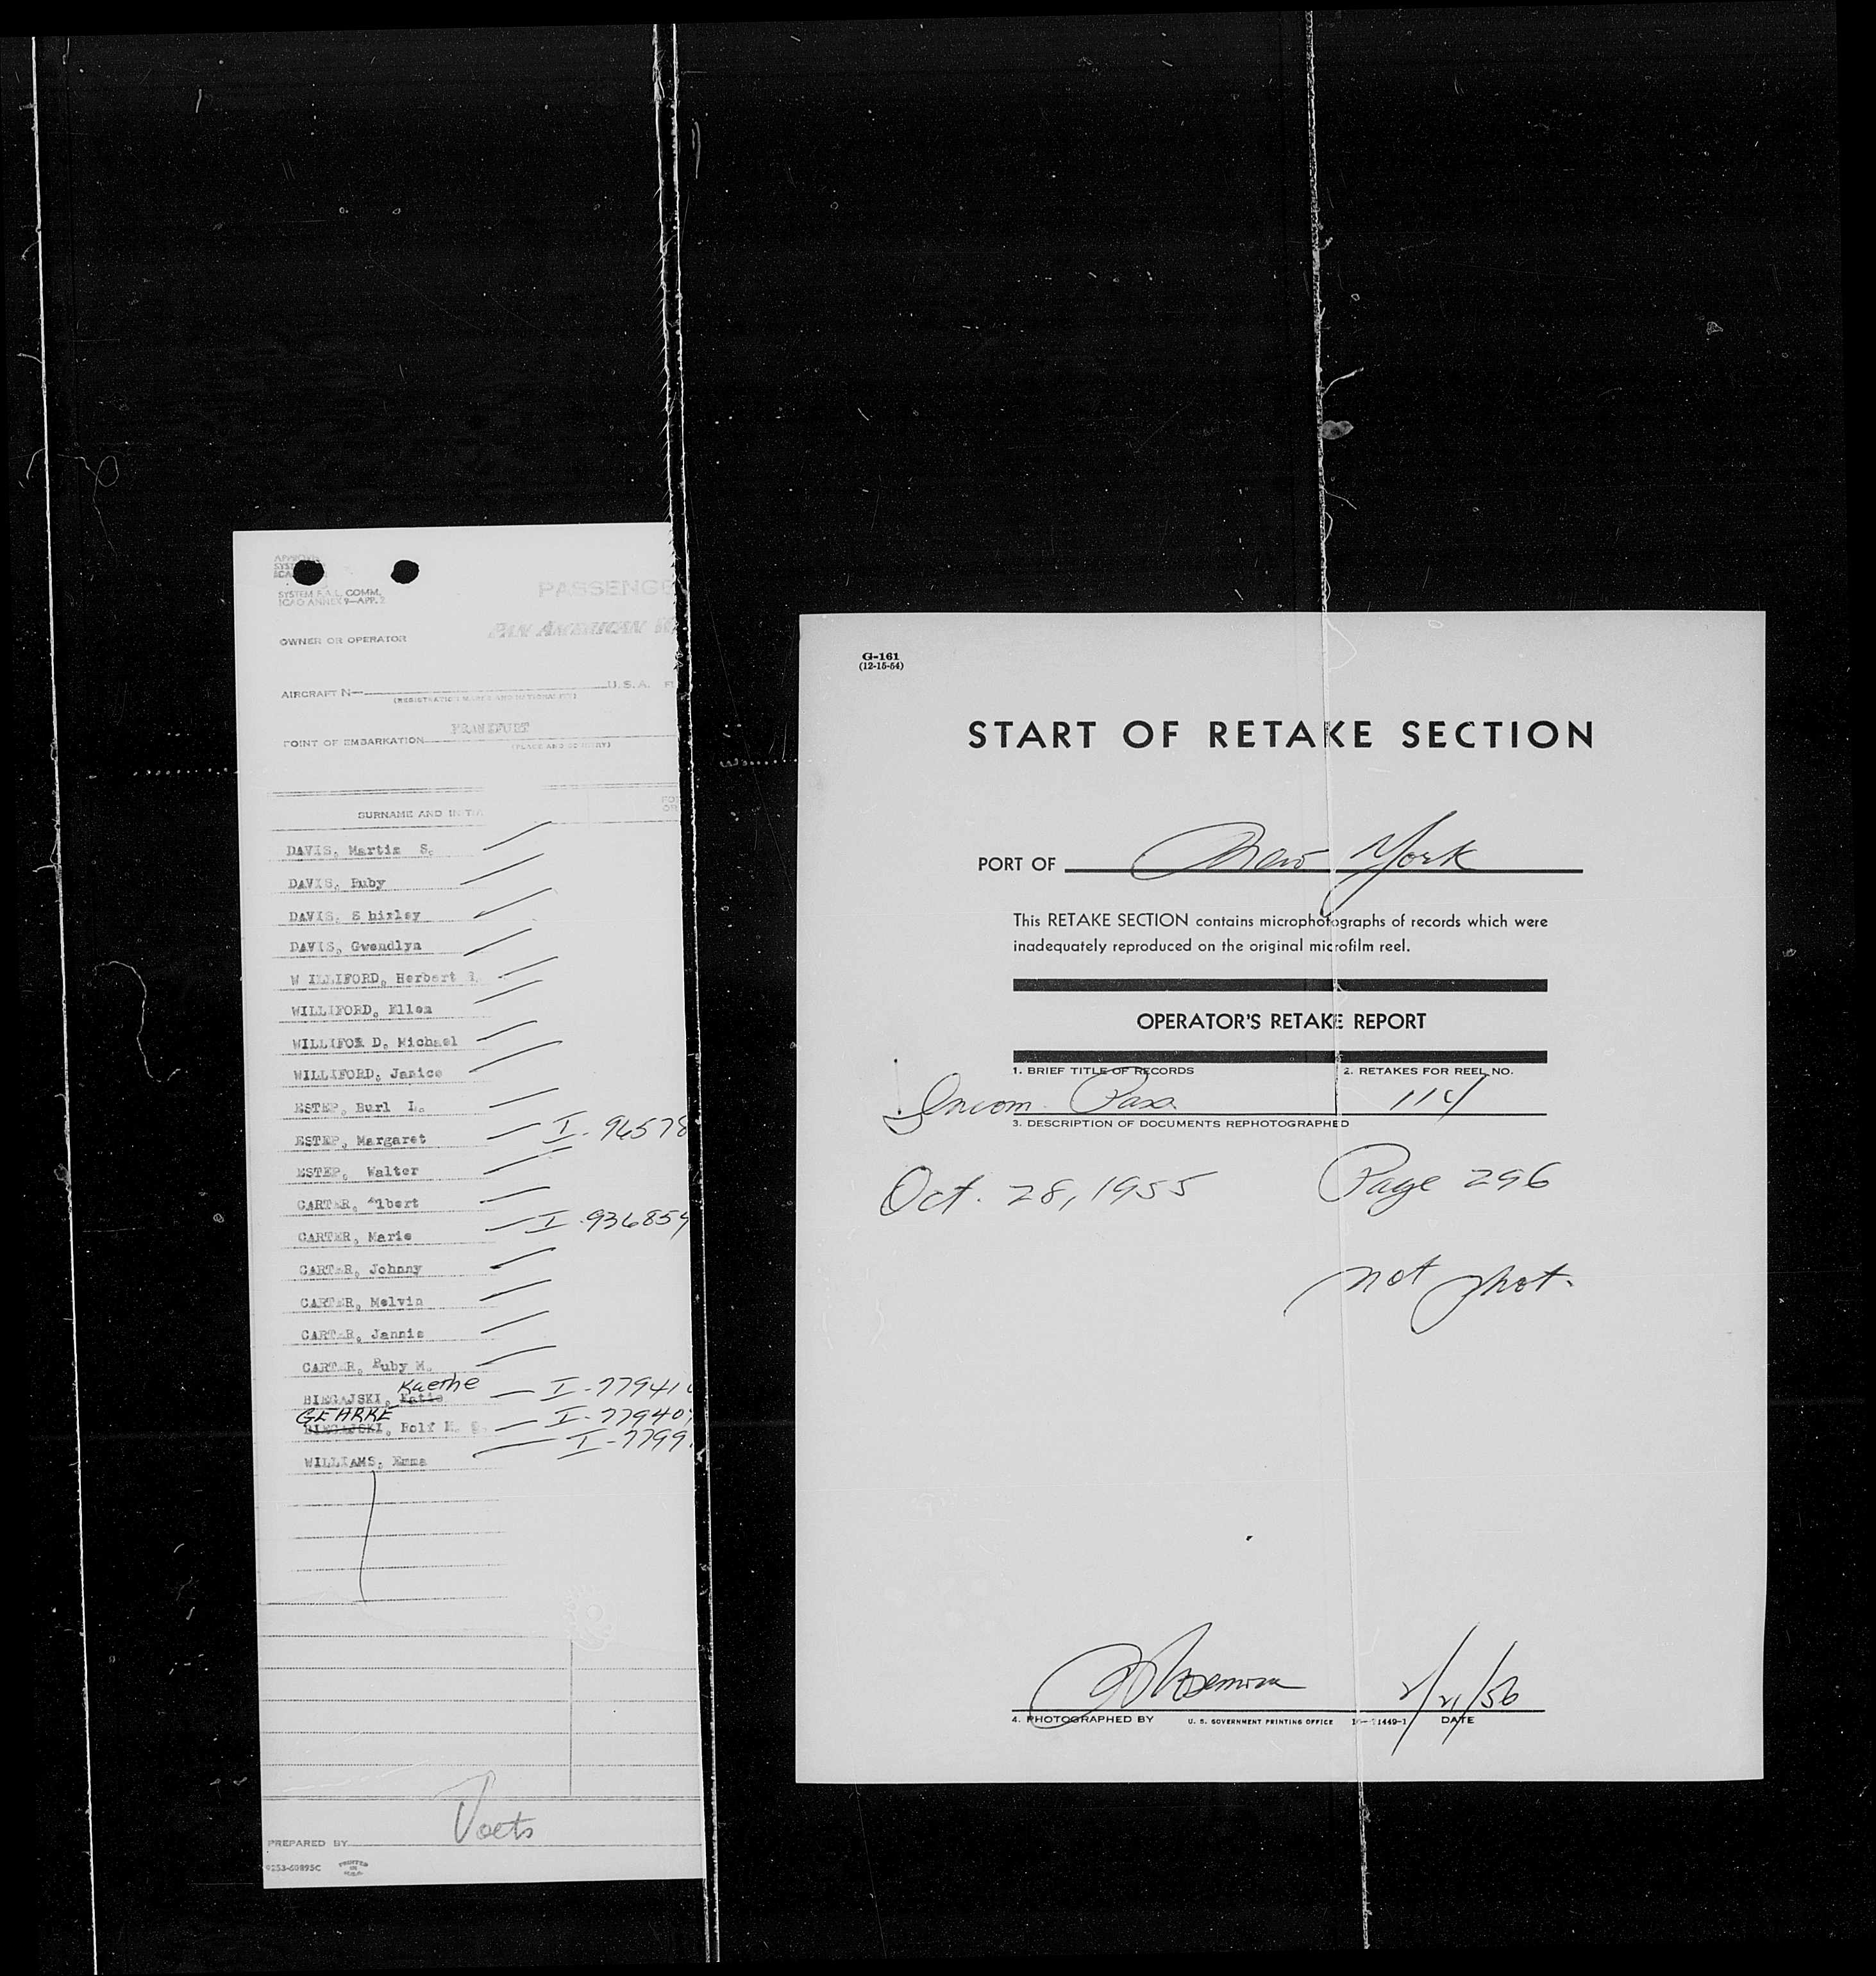 SYSTEM F.A.L. COMM.
ICAO ANNEX 9—APP. 2
PASSENGE
OWNER OR OPERATOR
PAN AMERICAN W
AIRCRAFT N— U.S.A.
(REGISTRATION MARKS AND NATIONALITY)
POINT OF EMBARKATION FRANKFURT
(PLACE AND COUNTRY)
SURNAME AND INITIA
DAVIS, Martin S.
DAVIS, Ruby
DAVIS, S hirley
DAVIS, Gwendlyn
W ILLIFORD, Herbert
WILLIFORD, Ellen
WILLIFOR D, Michael
WILLIFORD, Janice
ESTEP, Burl L.
ESTEP, Margaret I-96578
ESTEP, Walter
CARTER, Albert
CARTER, Marie I-936854
CARTER, Johnny
CARTER, Melvin
CARTER, Jannie
CARTER, Ruby M.
Kaethe
BIEGAJSKI, Katie I-77941
GEHRKE
BIEGAJSKI, Rolf H. I-77940
I-7799
WILLIAMS, Emma
Voets
PREPARED BY
PRINTED IN U.S.A.
G-161
(12-15-54)
START OF RETAKE SECTION
PORT OF New York
This RETAKE SECTION contains microphotographs of records which were
inadequately reproduced on the original microfilm reel.
OPERATOR'S RETAKE REPORT
1. BRIEF TITLE OF RECORDS 2. RETAKES FOR REEL NO.
Incom. Pass.
3. DESCRIPTION OF DOCUMENTS REPHOTOGRAPHED
Oct. 28, 1955 Page 296
not phot.
2/21/56
4. PHOTOGRAPHED BY U. S. GOVERNMENT PRINTING OFFICE DATE